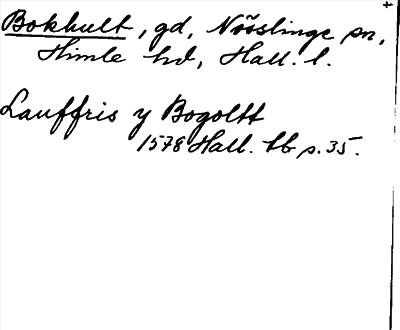 Bokhult, gd, Nösslinge sn,
Himle hd, Hall. l.
Lauffris y Bogoltt
1578 Hall. tb s. 35.